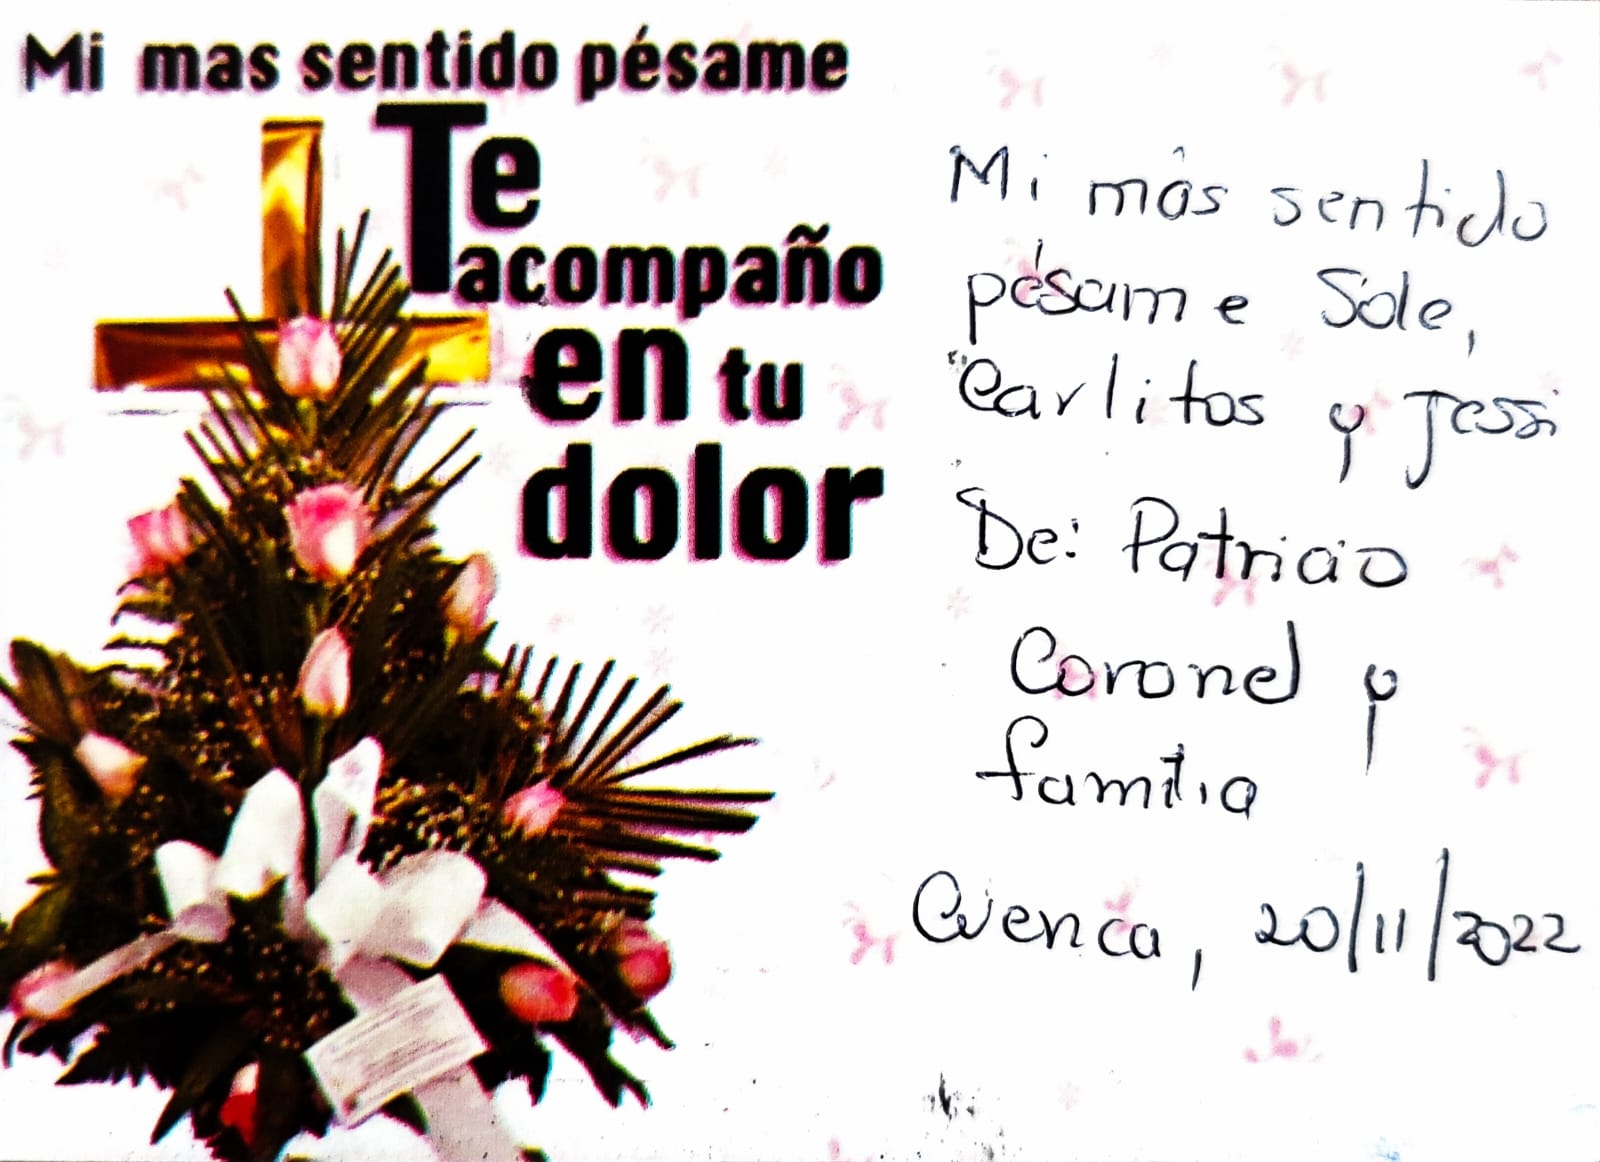 Mi mas sentido pésame
Te
acompaño
en tu
dolor
Mi más sentido
pésame Sole,
Carlitos y Jessi
De: Patricio
Coronel y
familia
Cuenca, 20/11/2022